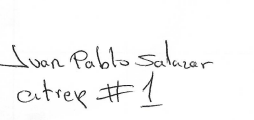 Juan Pablo Salazar
citrep # 1